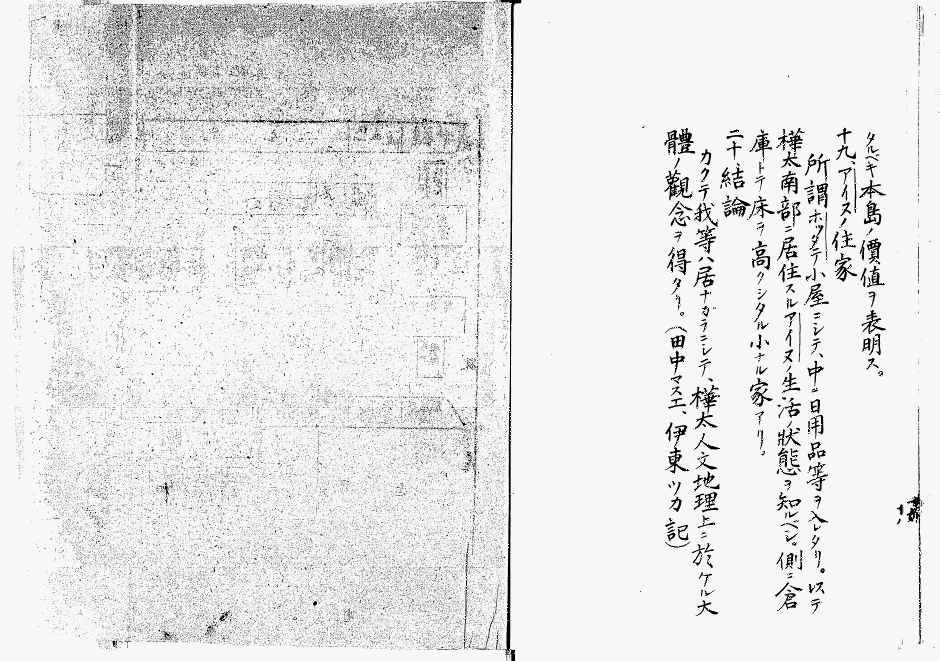 タルベキ本島ノ價値ヲ表明ス。
十九、アイヌノ住家
所謂ホッタテ小屋ニシテ、中ニ日用品等ヲ入レタリ。
樺太南部ニ居住スルアイヌノ生活ノ狀態ヲ知ルベシ。側ニ倉
庫トテ床ヲ高クシタル小ナル家アリ。
二十結論
カクテ我等ハ居ナガラニシテ、樺太人文地理上ニ於ケル大
體ノ觀念ヲ得タリ。(田中マスエ、伊東ツカ記)